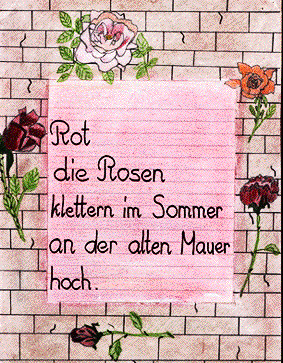 Rot
die Rosen
klettern im Sommer
an der alten Mauer
hoch.